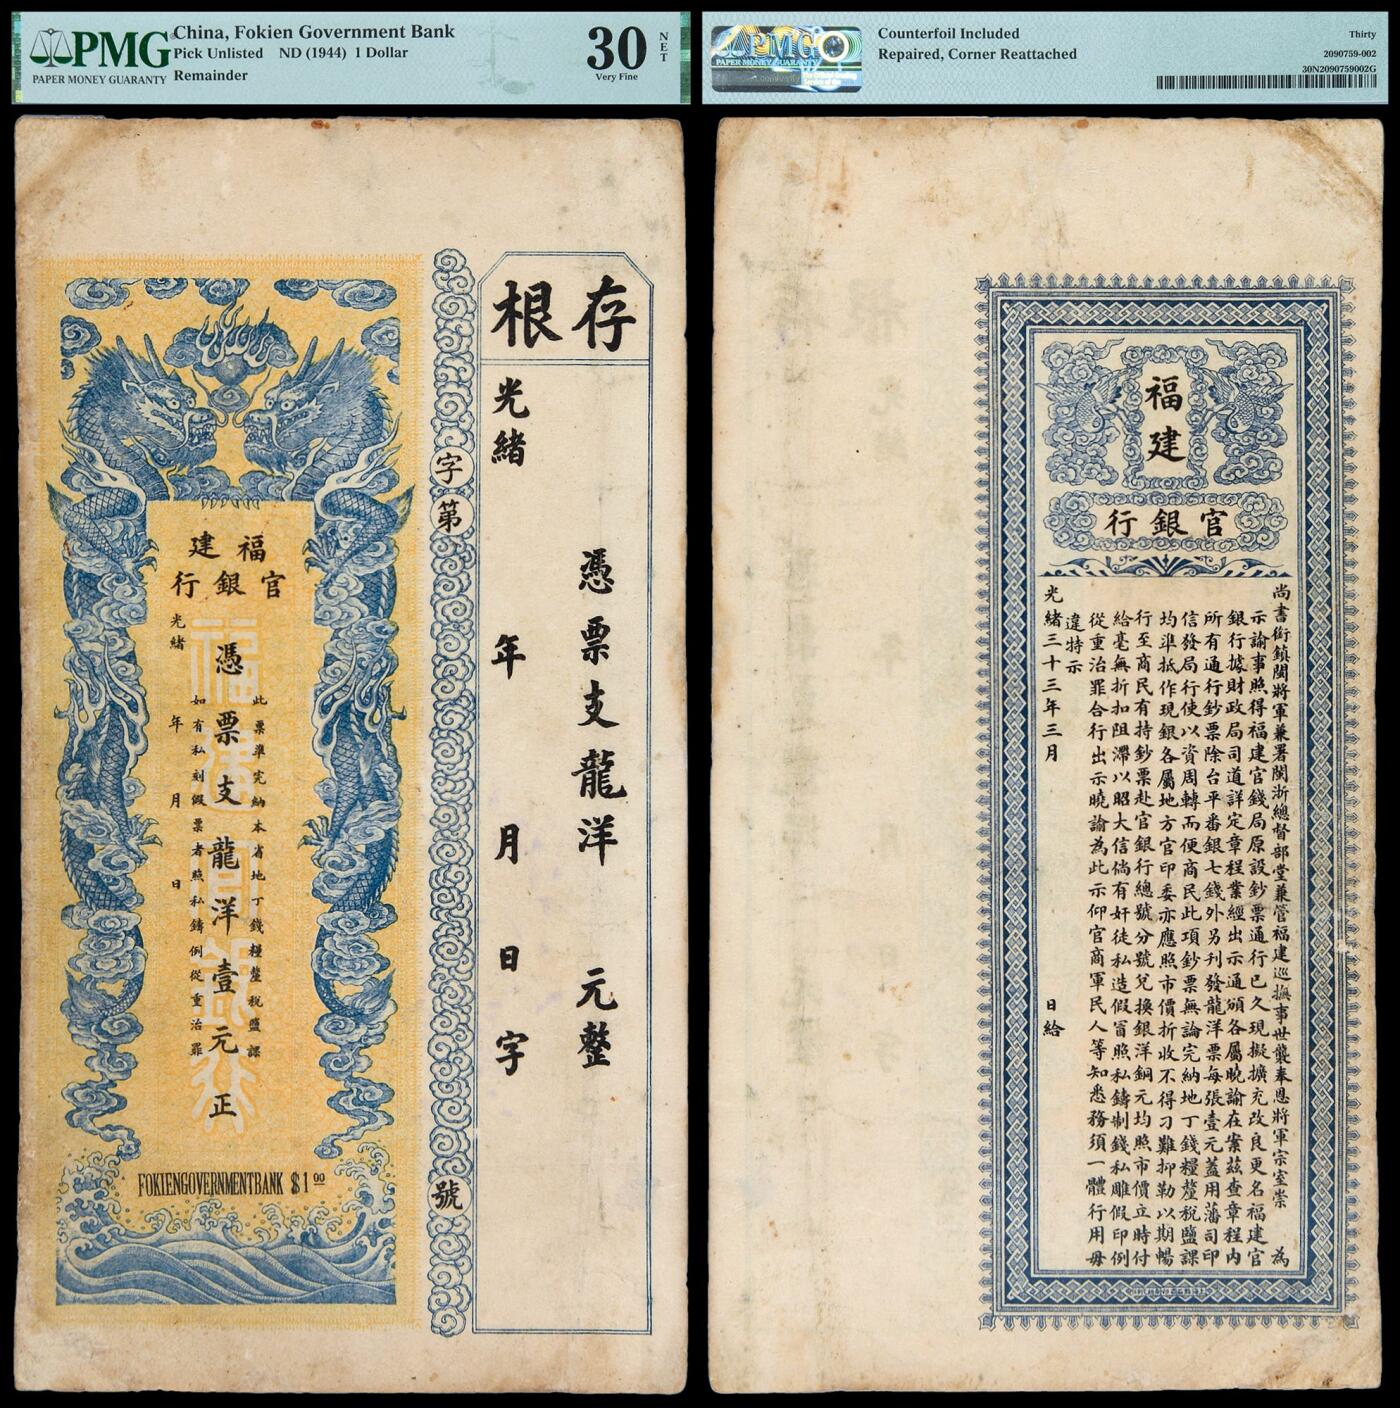 PMG
PAPER MONEY GUARANTY
China, Fokien Government Bank
Pick Unlisted ND (1944) 1 Dollar
Remainder
30 NET
Very Fine
PMG
PAPER MONEY GUARANTY
Counterfoil Included
Repaired, Corner Reattached
Thirty
2090759-002
30N2090759002G
存根
憑票支龍洋 元整
光緒 年 月 日 字
字第 號
福建
官銀行
此票準完納本省地丁錢糧釐稅鹽課
憑票支龍洋壹元正
如有私刻假票者照私鑄例從重治罪
光緒 年 月 日
福建官銀行
FOKIENGOVERNMENTBANK $1.00
福建
官銀行
尚書銜鎮閩將軍兼署閩浙總督部堂兼管福建巡撫事世襲奉恩將軍宗室崇 為
示諭事照得福建官錢局原設鈔票通行已久現擬擴充改良更名福建官
銀行據財政局司道詳定章程業經出示通頒各屬曉諭在案茲查章程內
所有通行鈔票除台平番銀七錢外另刊發龍洋票每張壹元蓋用藩司印
信發局行使以資周轉而便商民此項鈔票無論完納地丁錢糧釐稅鹽課
均準抵作現銀各屬地方官印委亦應照市價折收不得刁難抑勒以期暢
行至商民有持鈔票赴官銀行總號分號兌換銀洋銅元均照市價立時付
給毫無折扣阻滯以昭大信倘有奸徒私造假冒照私鑄制錢私雕假印例
從重治罪合行出示曉諭為此示仰官商軍民人等知悉務須一體行用毋
違特示
光緒三十三年三月 日給